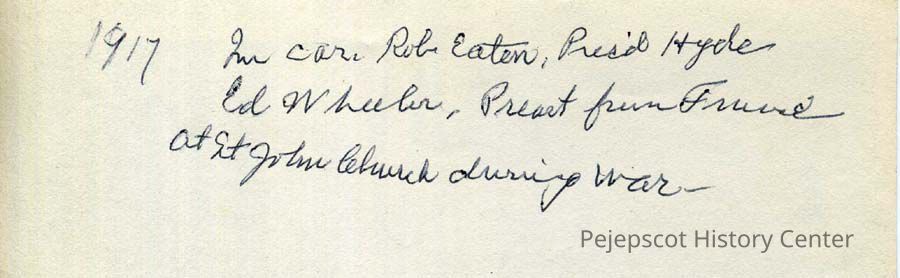 1917 In car. Rob Eaton, Pres'd Hyde
Ed Wheeler, Preast from France
at St John Church during War
Pejepscot History Center